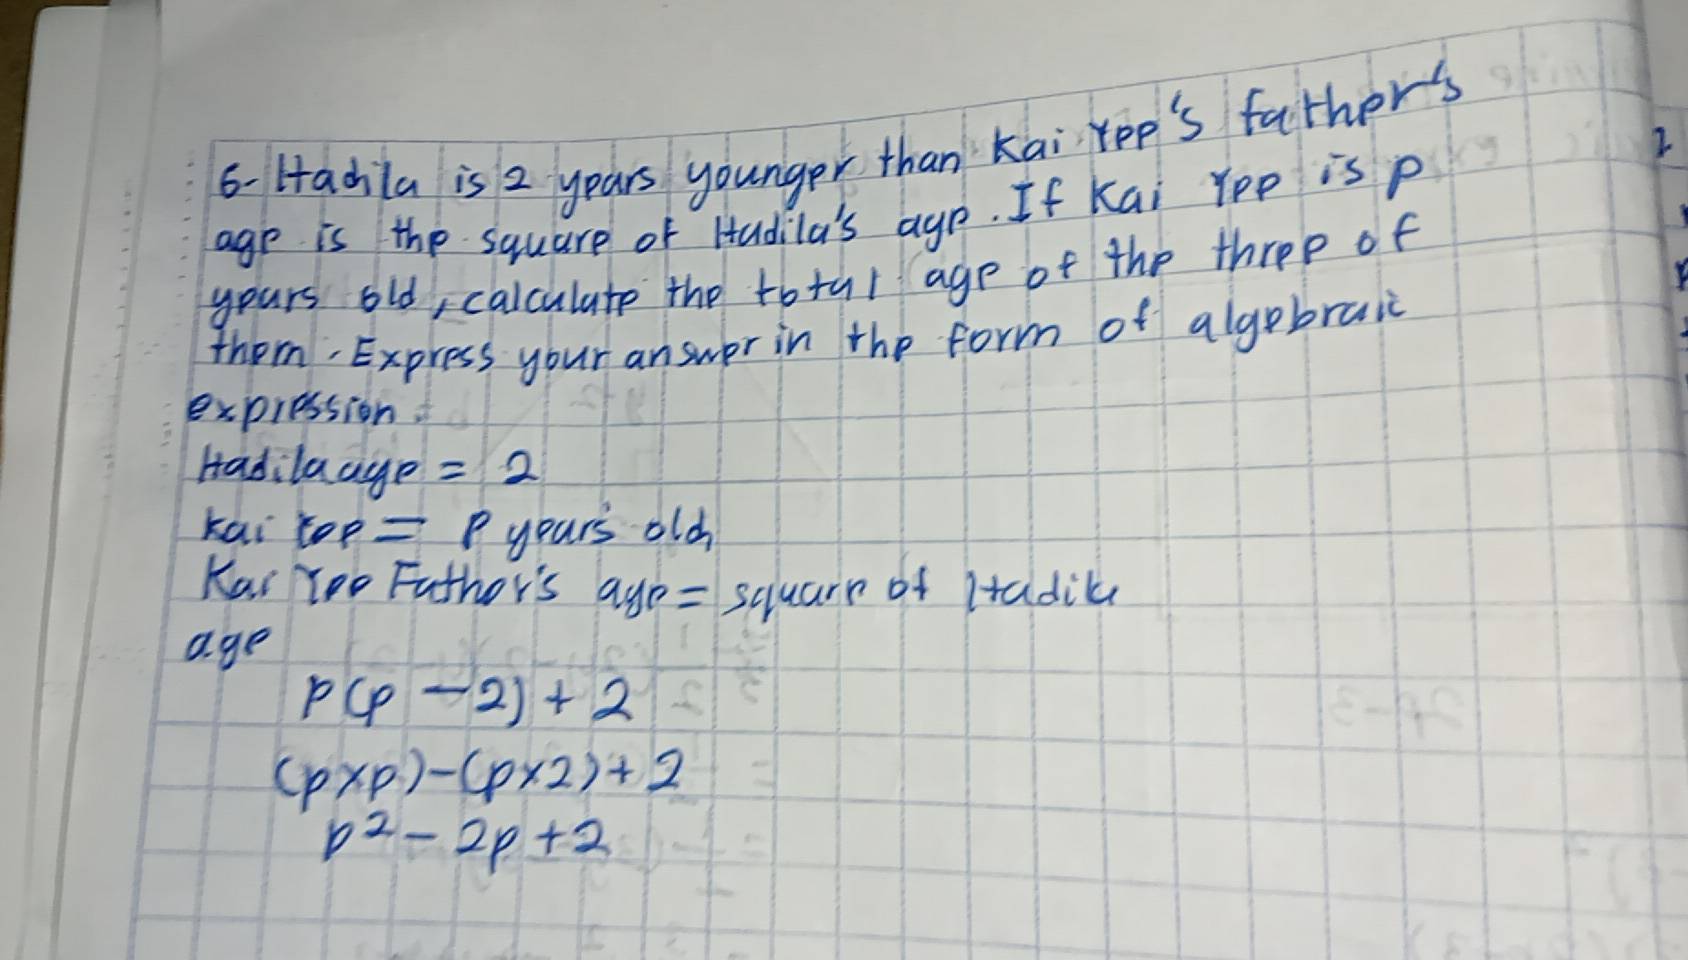 6- Hadila is 2 years younger than Kai Yee's father's
age is the square of Hadila's age. If Kai Yee is p
years old, calculate the total age of the three of
them. Express your answer in the form of algebraic
expression.
Hadila age = 2
Kai Yee = P years old
Kai Yee Father's age = square of Hadila
age
P(p - 2) + 2
(p×p)-(p×2)+2
p² - 2p + 2
2p-3